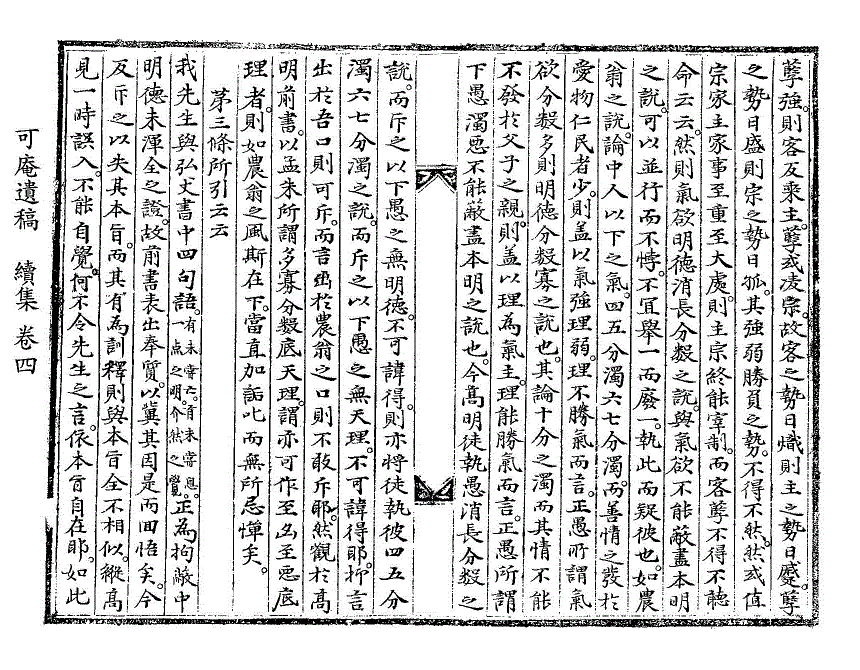 孽強。則客反乘主。孽或凌宗。故客之勢日熾則主之勢日蹙。孽
之勢日盛則宗之勢日孤。其強弱勝負之勢。不得不然。然或値
宗家主家事至重至大處。則主宗終能宰制。而客孽不得不聽
命云云。然則氣欲明德消長分數之說。與氣欲不能蔽盡本明
之說。可以並行而不悖。不宜擧一而廢一。執此而疑彼也。如農
翁之說。論中人以下之氣。四五分濁六七分濁。而善情之發於
愛物仁民者少。則盖以氣強理弱。理不勝氣而言。正愚所謂氣
欲分數多則明德分數寡之說也。其論十分之濁而其情不能
不發於父子之親。則盖以理爲氣主。理能勝氣而言。正愚所謂
下愚濁惡不能蔽盡本明之說也。今高明徒執愚消長分數之
說。而斥之以下愚之無明德。不可諱得。則亦將徒執彼四五分
濁六七分濁之說。而斥之以下愚之無天理。不可諱得耶。抑言
出於吾口則可斥。而言出於農翁之口則不敢斥耶。然觀於高
明前書。以孟朱所謂多寡分數底天理。謂亦可作至凶至惡底
理者。則如農翁之風斯在下。當直加詬叱而無所忌憚矣。
第三條所引云云
我先生與弘文書中四句語。有未嘗亡。有未嘗息。一点之明。介然之覺。正爲拘蔽中
明德未渾全之證。故前書表出奉質。以冀其因是而回悟矣。今
反斥之以失其本旨。而其有爲訓釋則與本旨全不相似。縱高
見一時誤入。不能自覺。何不令先生之言。依本旨自在耶。如此
可庵遺稿 續集 卷四